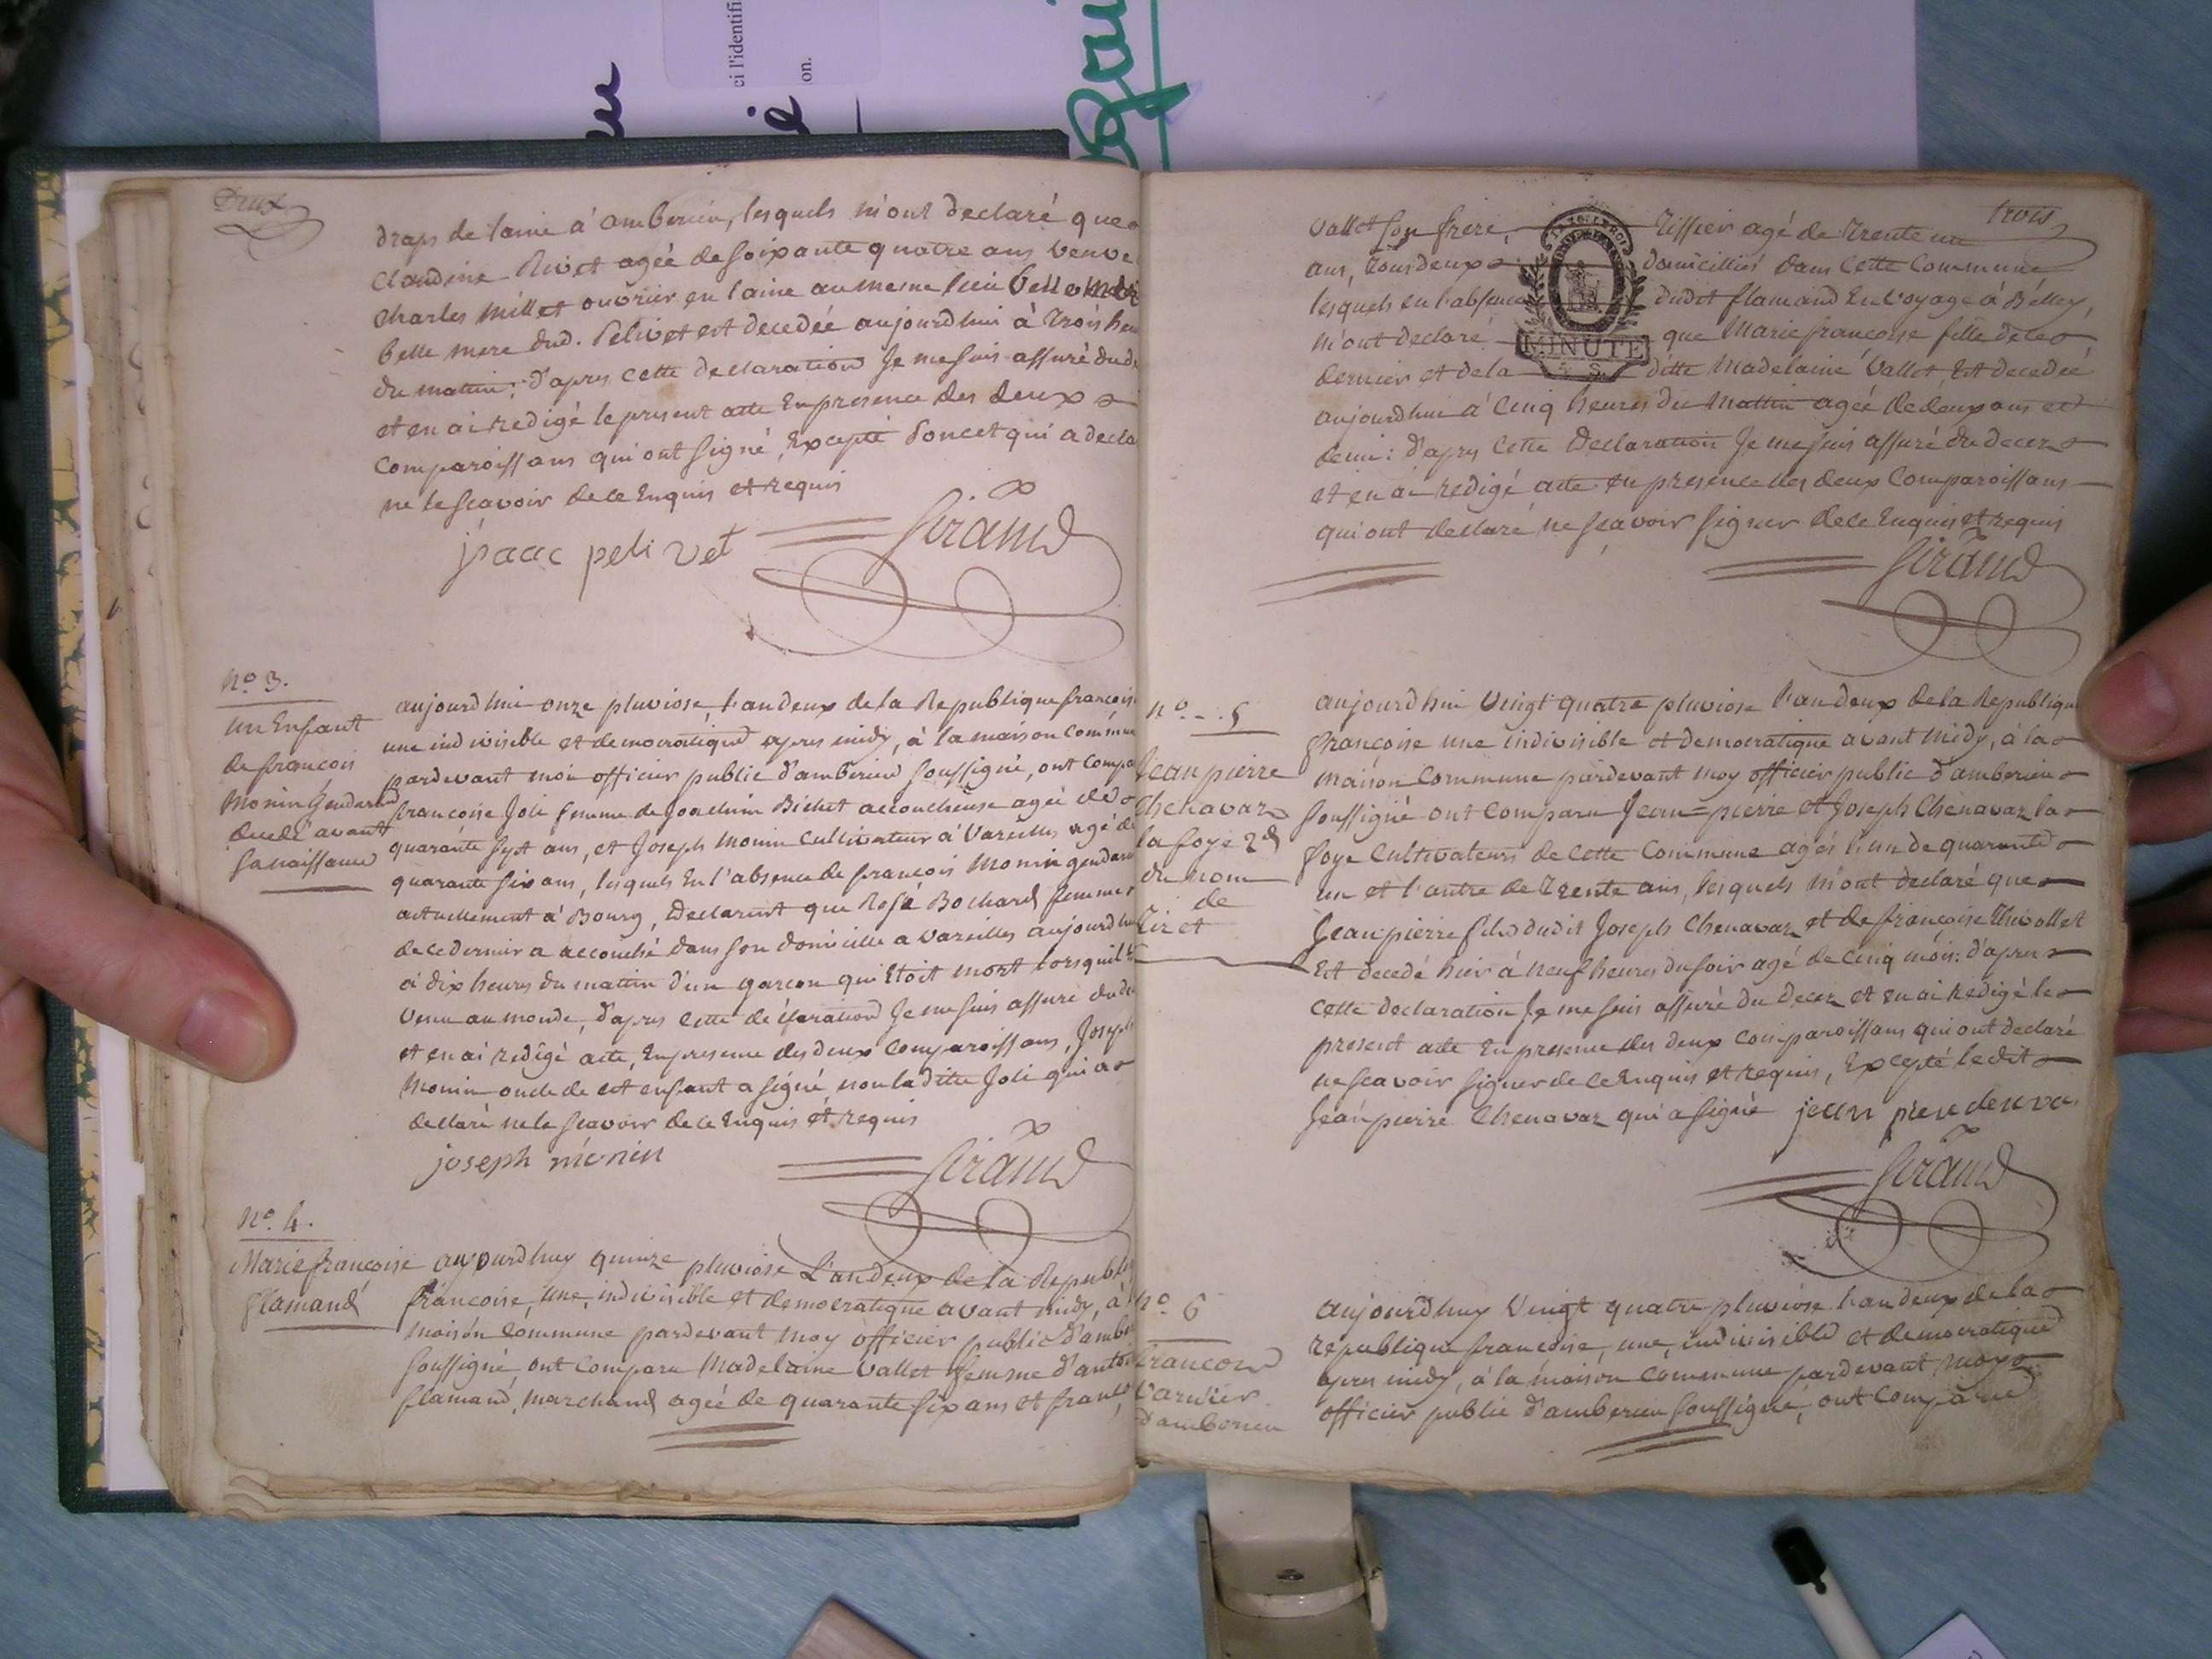 ci l'identifi
on.
Deux
draps de laine à amberieu, lesquels m'ont declaré que
Claudine Rivet agée de soixante quatre ans veuve
charles millet ouvrier en laine au meme lieu belle mere
belle mere dud. Pelivet est decedée aujourd'hui à trois heu
du mattin; d'apres cette declaration Je me suis assuré du d
et en ai redigé le present acte En presence des deux
Comparoissans qui ont signé, Excepté Poncet qui a decla
ne le scavoir de ce Enquis et requis
isaac peli vet
Giraud
N.o 3.
un Enfant
de francois
Monin Gendarme
decedé avant
sa naissance
aujourd'hui onze pluviose, l'an deux de la Republique francois
une indivisible et democratique apres midy, à la maison Commune
pardevant moi officier public d'amberieu soussigné, ont Compa
francoise Joli femme de Joachim Bichet accoucheuse agée de
quarante sept ans, et Joseph Monin Cultivateur à Vareilles agé de
quarante six ans, lesquels En l'absence de francois Monin gendarm
actuellement à Bourg, declarent que Rose Bochard femme
de ce dernier a accouché dans son domicille a vareilles aujourd'hu
à dix heures du mattin d'un garcon qui Etoit mort lorsqu'il E
venu au monde, d'apres cette déclaration Je me suis assuré du de
et en ai redigé acte, En presence des deux Comparoissans, Joseph
Monin oncle de cet enfant a signé non ladite Joli qui a
declaré ne le scavoir de ce Enquis et requis
joseph monin
Giraud
N.o 4.
Marie francoise
flamand
aujourd'huy quinze pluviose L'an deux de la Republiq
francoise, une, indivisible et democratique avant midy, à
maison Commune pardevant moy officier public d'ambe
soussigné, ont Comparu Madelaine Vallet femme d'antoi
flamand, marchand agée de quarante six ans et franç
trois
Vallet son frere, Tissier agé de Trente un
ans, tous deux domicilliés dans cette Commune
lesquels en l'absence dudit flamand En Voyage à Belley,
m'ont declaré que Marie francoise fille de ce
dernier et de la ditte Madelaine Vallet, Est decedée
aujourd'hui à Cinq heures du mattin agée de deux ans et
demi: d'apres Cette Declaration Je me suis assuré du decez
et en ai redigé acte en presence des deux Comparoissans
qui ont declaré ne scavoir signer de ce Enquis et requis
MINUTE
5 S.
Giraud
n.o 5
Jean pierre
Chenavaz
la foye 2d
du nom
de
Tiret
aujourd'hui Vingt quatre pluviose l'an deux de la Republique
françoise une indivisible et democratique avant midy, à la
maison Commune pardevant moy officier public d'amberieu
soussigné ont Comparu Jean-pierre et Joseph Chenavaz la
foye Cultivateurs de cette Commune agés l'un de quarante
un et l'autre de Trente ans, lesquels m'ont declaré que
Jean pierre fils dudit Joseph Chenavaz et de françoise Thivollet
Est decedé hier à neuf heures du soir agé de Cinq mois: d'apres
cette declaration Je me suis assuré du decez et en ai redigé le
present acte En presence des deux Comparoissans qui ont declaré
ne scavoir signer de ce Enquis et requis, Excepté ledit
Jean pierre Chenavaz qui a signé jean piere
Giraud
n.o 6
francois
Varnier
d'amberieu
aujourd'huy Vingt quatre pluviose l'an deux de la
republique francoise, une, indivisible et democratique
apres midy, à la maison Commune pardevant moy
officier public d'amberieu soussigné, ont Comparu